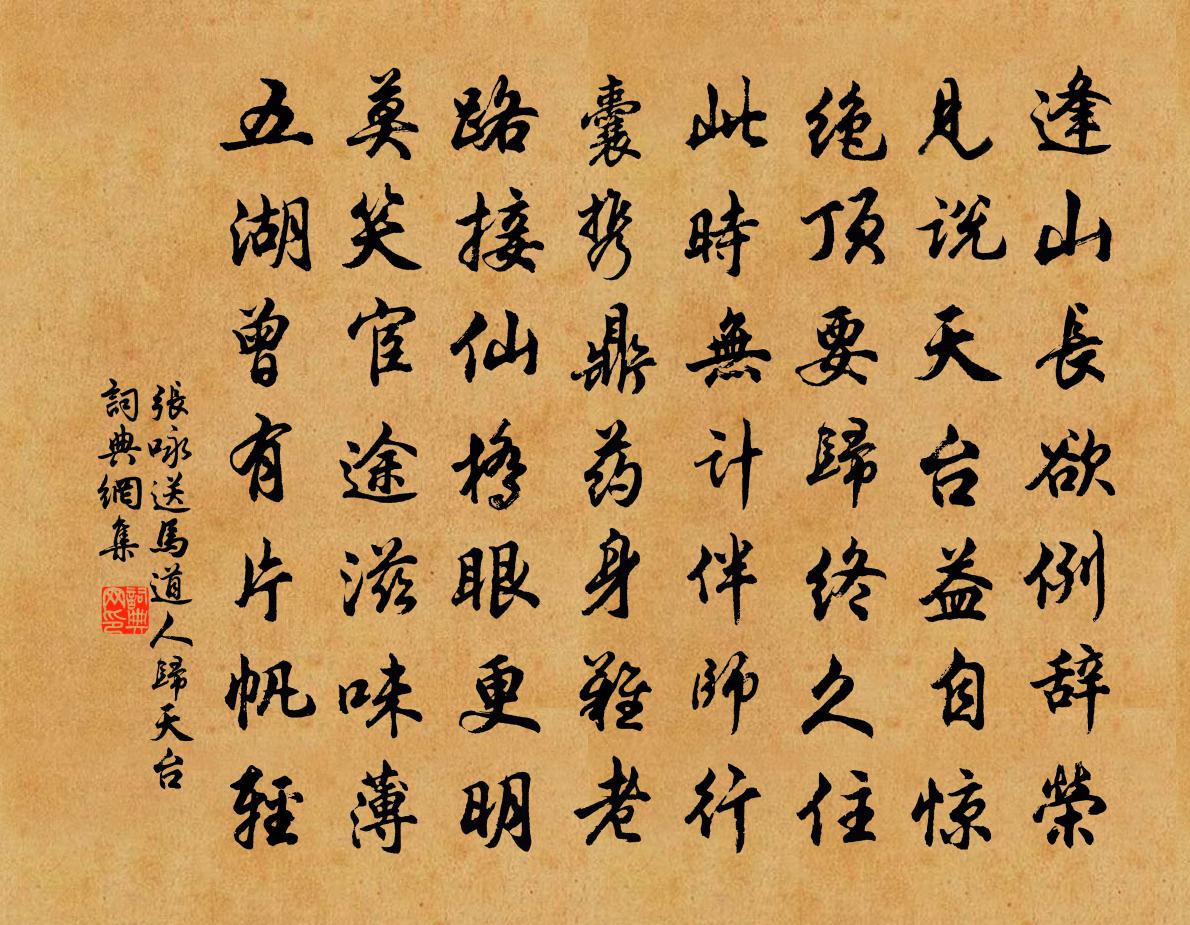 逢山長欲例辞榮
見説天台益自惊
绝顶要歸终久住
此時無計伴師行
囊携鼎药身難老
路接仙橋眼更明
莫笑宦途滋味薄
五湖曾有片帆輕
張咏送馬道人歸天台
詞典網集
詞典网印